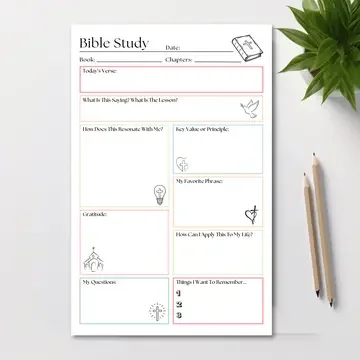 Bible Study
Date:
Book:
Chapters:
Today's Verse:
What Is This Saying? What Is The Lesson?
How Does This Resonate With Me?
Key Value or Principle:
My Favorite Phrase:
Gratitude:
How Can I Apply This To My Life?
My Questions:
Things I Want To Remember...
1
2
3